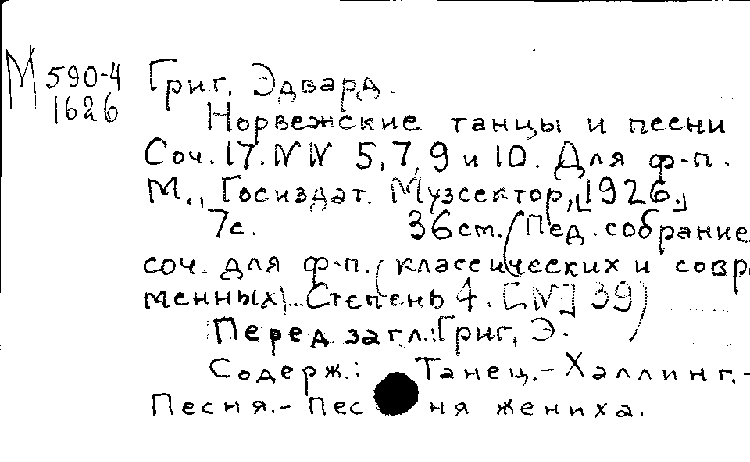 М 590-4 Григ, Эдвард.
1626
Норвежские танцы и песни
Соч. 17. №№ 5, 7, 9 и 10. Для ф-п.
М., Госиздат. Музсектор, [1926.]
7с. 36см. (Пед. собрание
соч. для ф-п. (классических и совре
менных). Степень 4. [№] 39)
Перед загл.: Григ, Э.
Содерж.: Танец.- Халлинг.-
Песня.- Пес ня жениха.